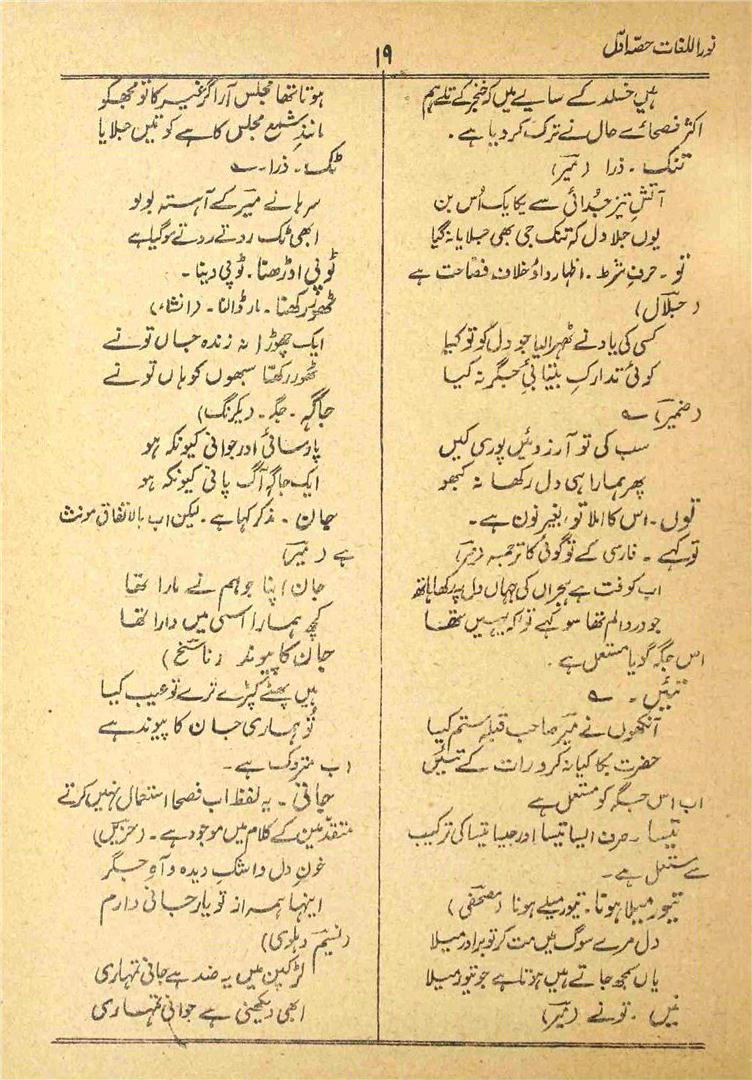 نور اللغات حصّہ اوّل
۱۹
ہیں خلد کے سایے میں کہ خنجر کے تلے ہم
اکثر فصحائے حال نے ترک کر دیا ہے۔
تنک۔ ذرا (میرؔ)
آتش تیز جدائی سے یکایک اُس بن
یوں جلا دل کہ تنک جی بھی جلایا نہ گیا
تو۔ حرفِ شرط۔ اظہار واؤ خلاف فصاحت ہے
(جلالؔ)
کسی کی یاد نے ٹھہرا لیا جو دل کو تو کیا
کوئی تدارکِ بیتابیٔ جگر نہ کیا
(ضمیرؔ) ؎
سب کی تو آرزوئیں پوری کیں
پھر ہمارا ہی دل رکھا نہ کبھو
توں۔ اس کا املا تو بغیر نون ہے۔
تو کہے۔ فارسی کے تو گوئی کا ترجمہ (میرؔ)
اب کوفت ہے ہجراں کی جہاں دل پہ رکھا ہاتھ
جو درد و الم تھا سو کہے تو اکہ یہیں تھا
اس جگہ گویا مستعمل ہے۔
تئیں۔ ؎
آنکھوں نے میرؔ صاحب قبلہ ستم کیا
حضرت بکا کیا نہ کرو رات کے تئیں
اب اس جگہ کو مستعمل ہے
تیسا۔ حرف ایسا تیسا اور جیسا تیسا کی ترکیب
سے مستعمل ہے۔
تیور میلا ہونا۔ تیور میلے ہونا (مصحفیؔ)
دل مرے سوگ میں مت کر تو برادر میلا
یاں سمجھ جاتے ہیں ہوتا ہے جو تیور میلا
تیں۔ تو نے (میرؔ)
ہوتا تھا مجلس آرا گر غیر کا تو مجھ کو
مانند شمع مجلس کاہے کو تیں جلایا
ٹک۔ ذرا۔ ؎
سرہانے میرؔ کے آہستہ بولو
ابھی ٹک روتے روتے سو گیا ہے
ٹوپی اوڑھنا۔ ٹوپی دینا۔
ٹھور رکھنا۔ مار ڈالنا۔ (انشاء)
ایک چھوڑا نہ زندہ جاں تو نے
ٹھور رکھا سبھوں کو ہاں تو نے
جاگہ۔ جگہ۔ (یکرنگ)
پارسائی اور جوانی کیونکہ ہو
ایک جاگہ آگ پانی کیونکہ ہو
جان۔ مذکر کہا ہے۔ لیکن اب بالاتفاق مونث
ہے (میرؔ)
جان اپنا جو ہم نے مارا تھا
کچھ ہمارا اسی میں وارا تھا
جان کا پیوند (ناسخؔ)
ہیں پھٹے کپڑے ترے تو عیب کیا
تو ہماری جان کا پیوند ہے
اب متروک ہے۔
جانی۔ یہ لفظ اب فصحا استعمال نہیں کرتے
متقدمین کے کلام میں موجود ہے۔ (حزیںؔ)
خونِ دل و اشکِ دیدہ و آہِ جگر
اینہا ہمہ از تو یار جانی دارم
(نسیمؔ دہلوی)
لڑکپن میں یہ ضد ہے جانی تمہاری
ابھی دیکھنی ہے جوانی تمہاری